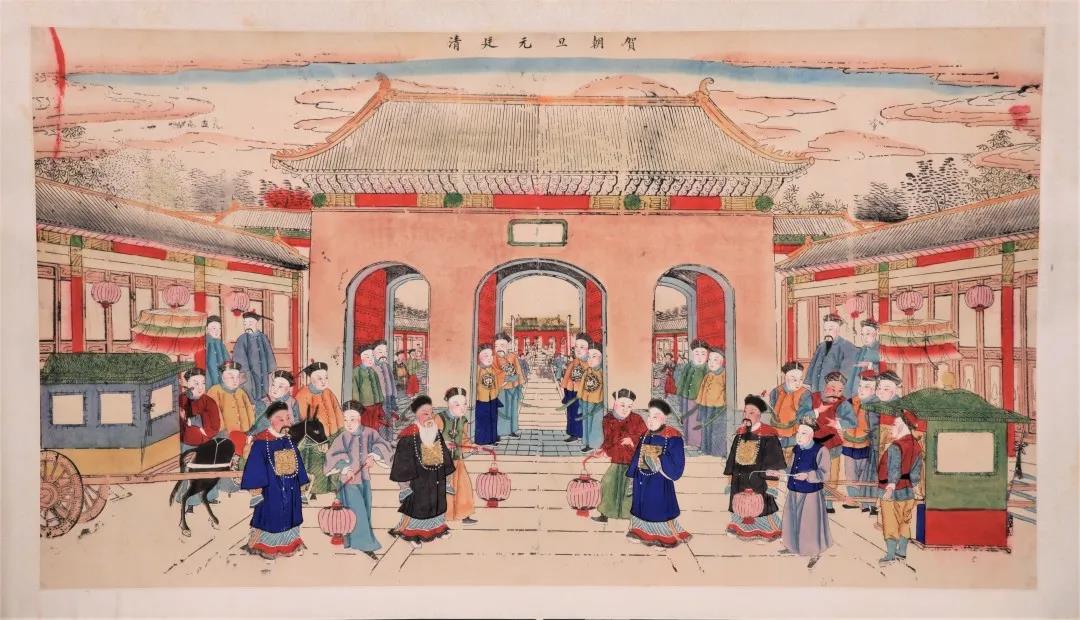 清廷元旦朝賀